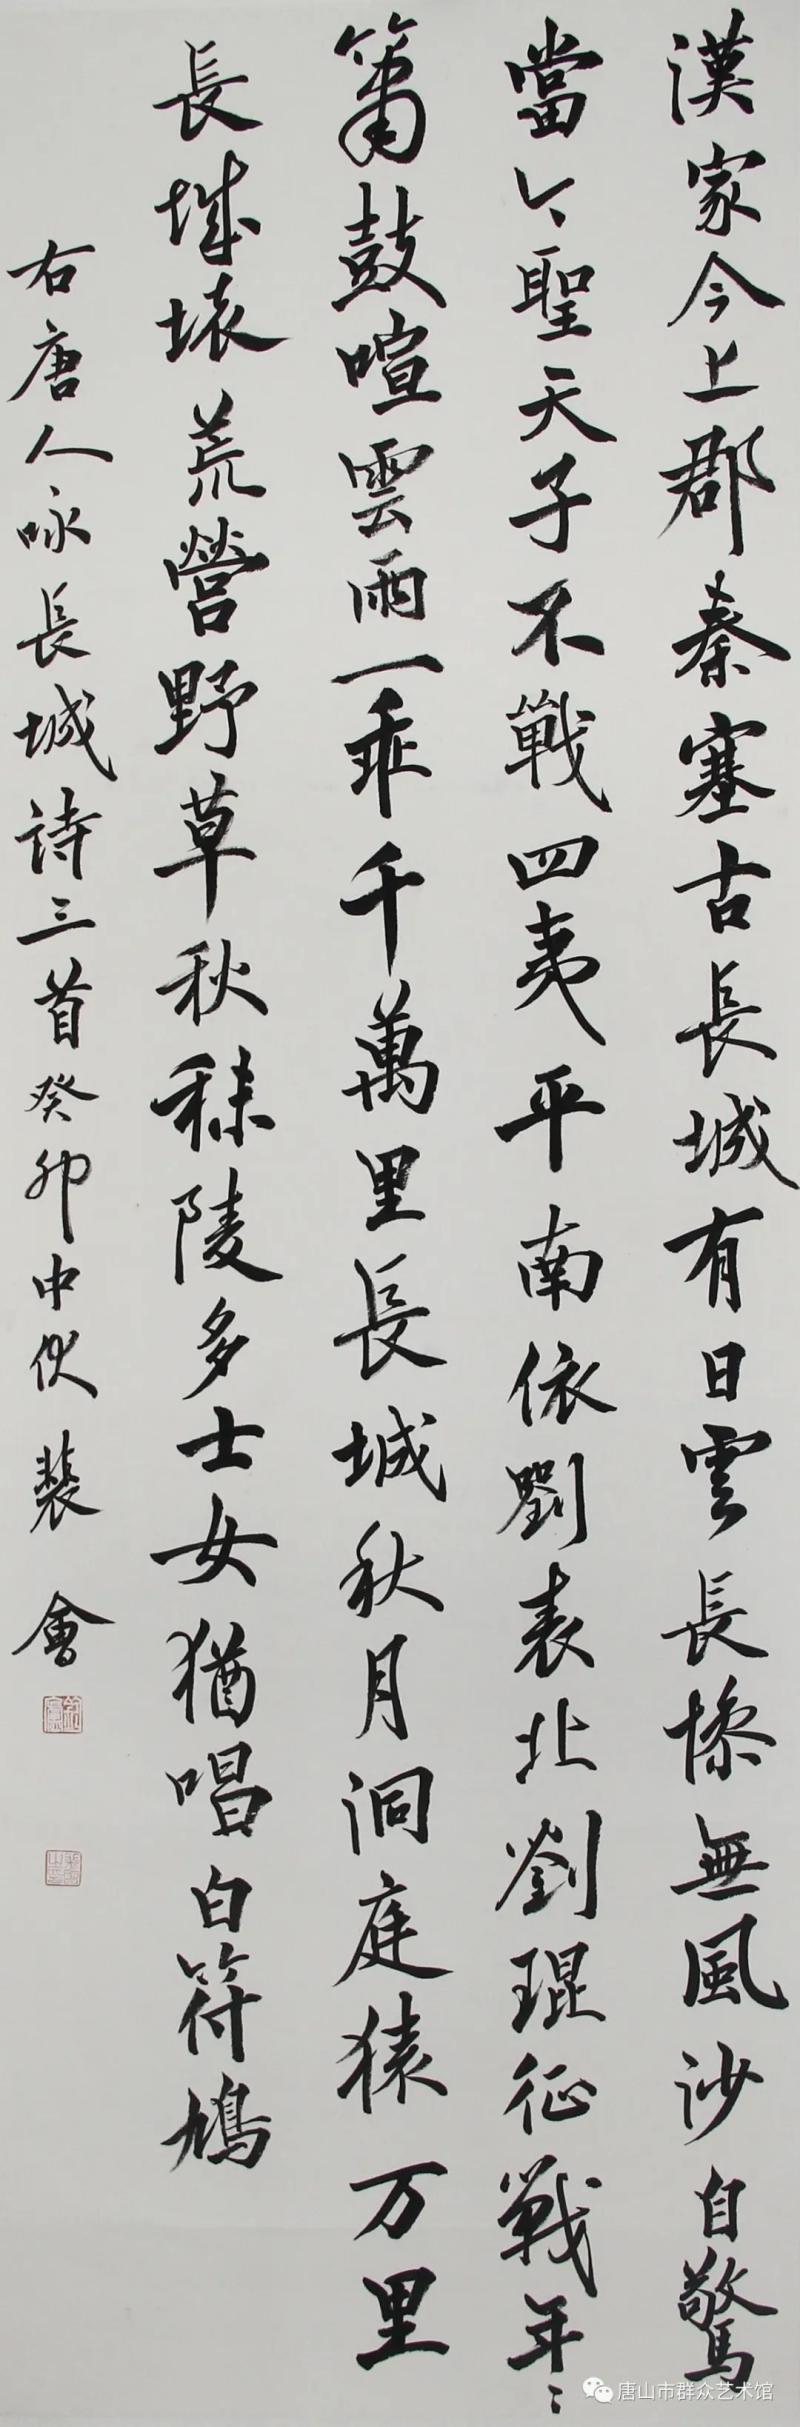 漢家今上郡秦塞古長城有日雲長慘無風沙自驚
當今聖天子不戰四夷平南依劉表北劉琨征戰年〻
簫鼓喧雲雨一乖千萬里長城秋月洞庭猿万里
長城壞荒營野草秋秣陵多士女猶唱白符鳩
右唐人咏長城詩三首癸卯中伏裴會
唐山市群众艺术馆